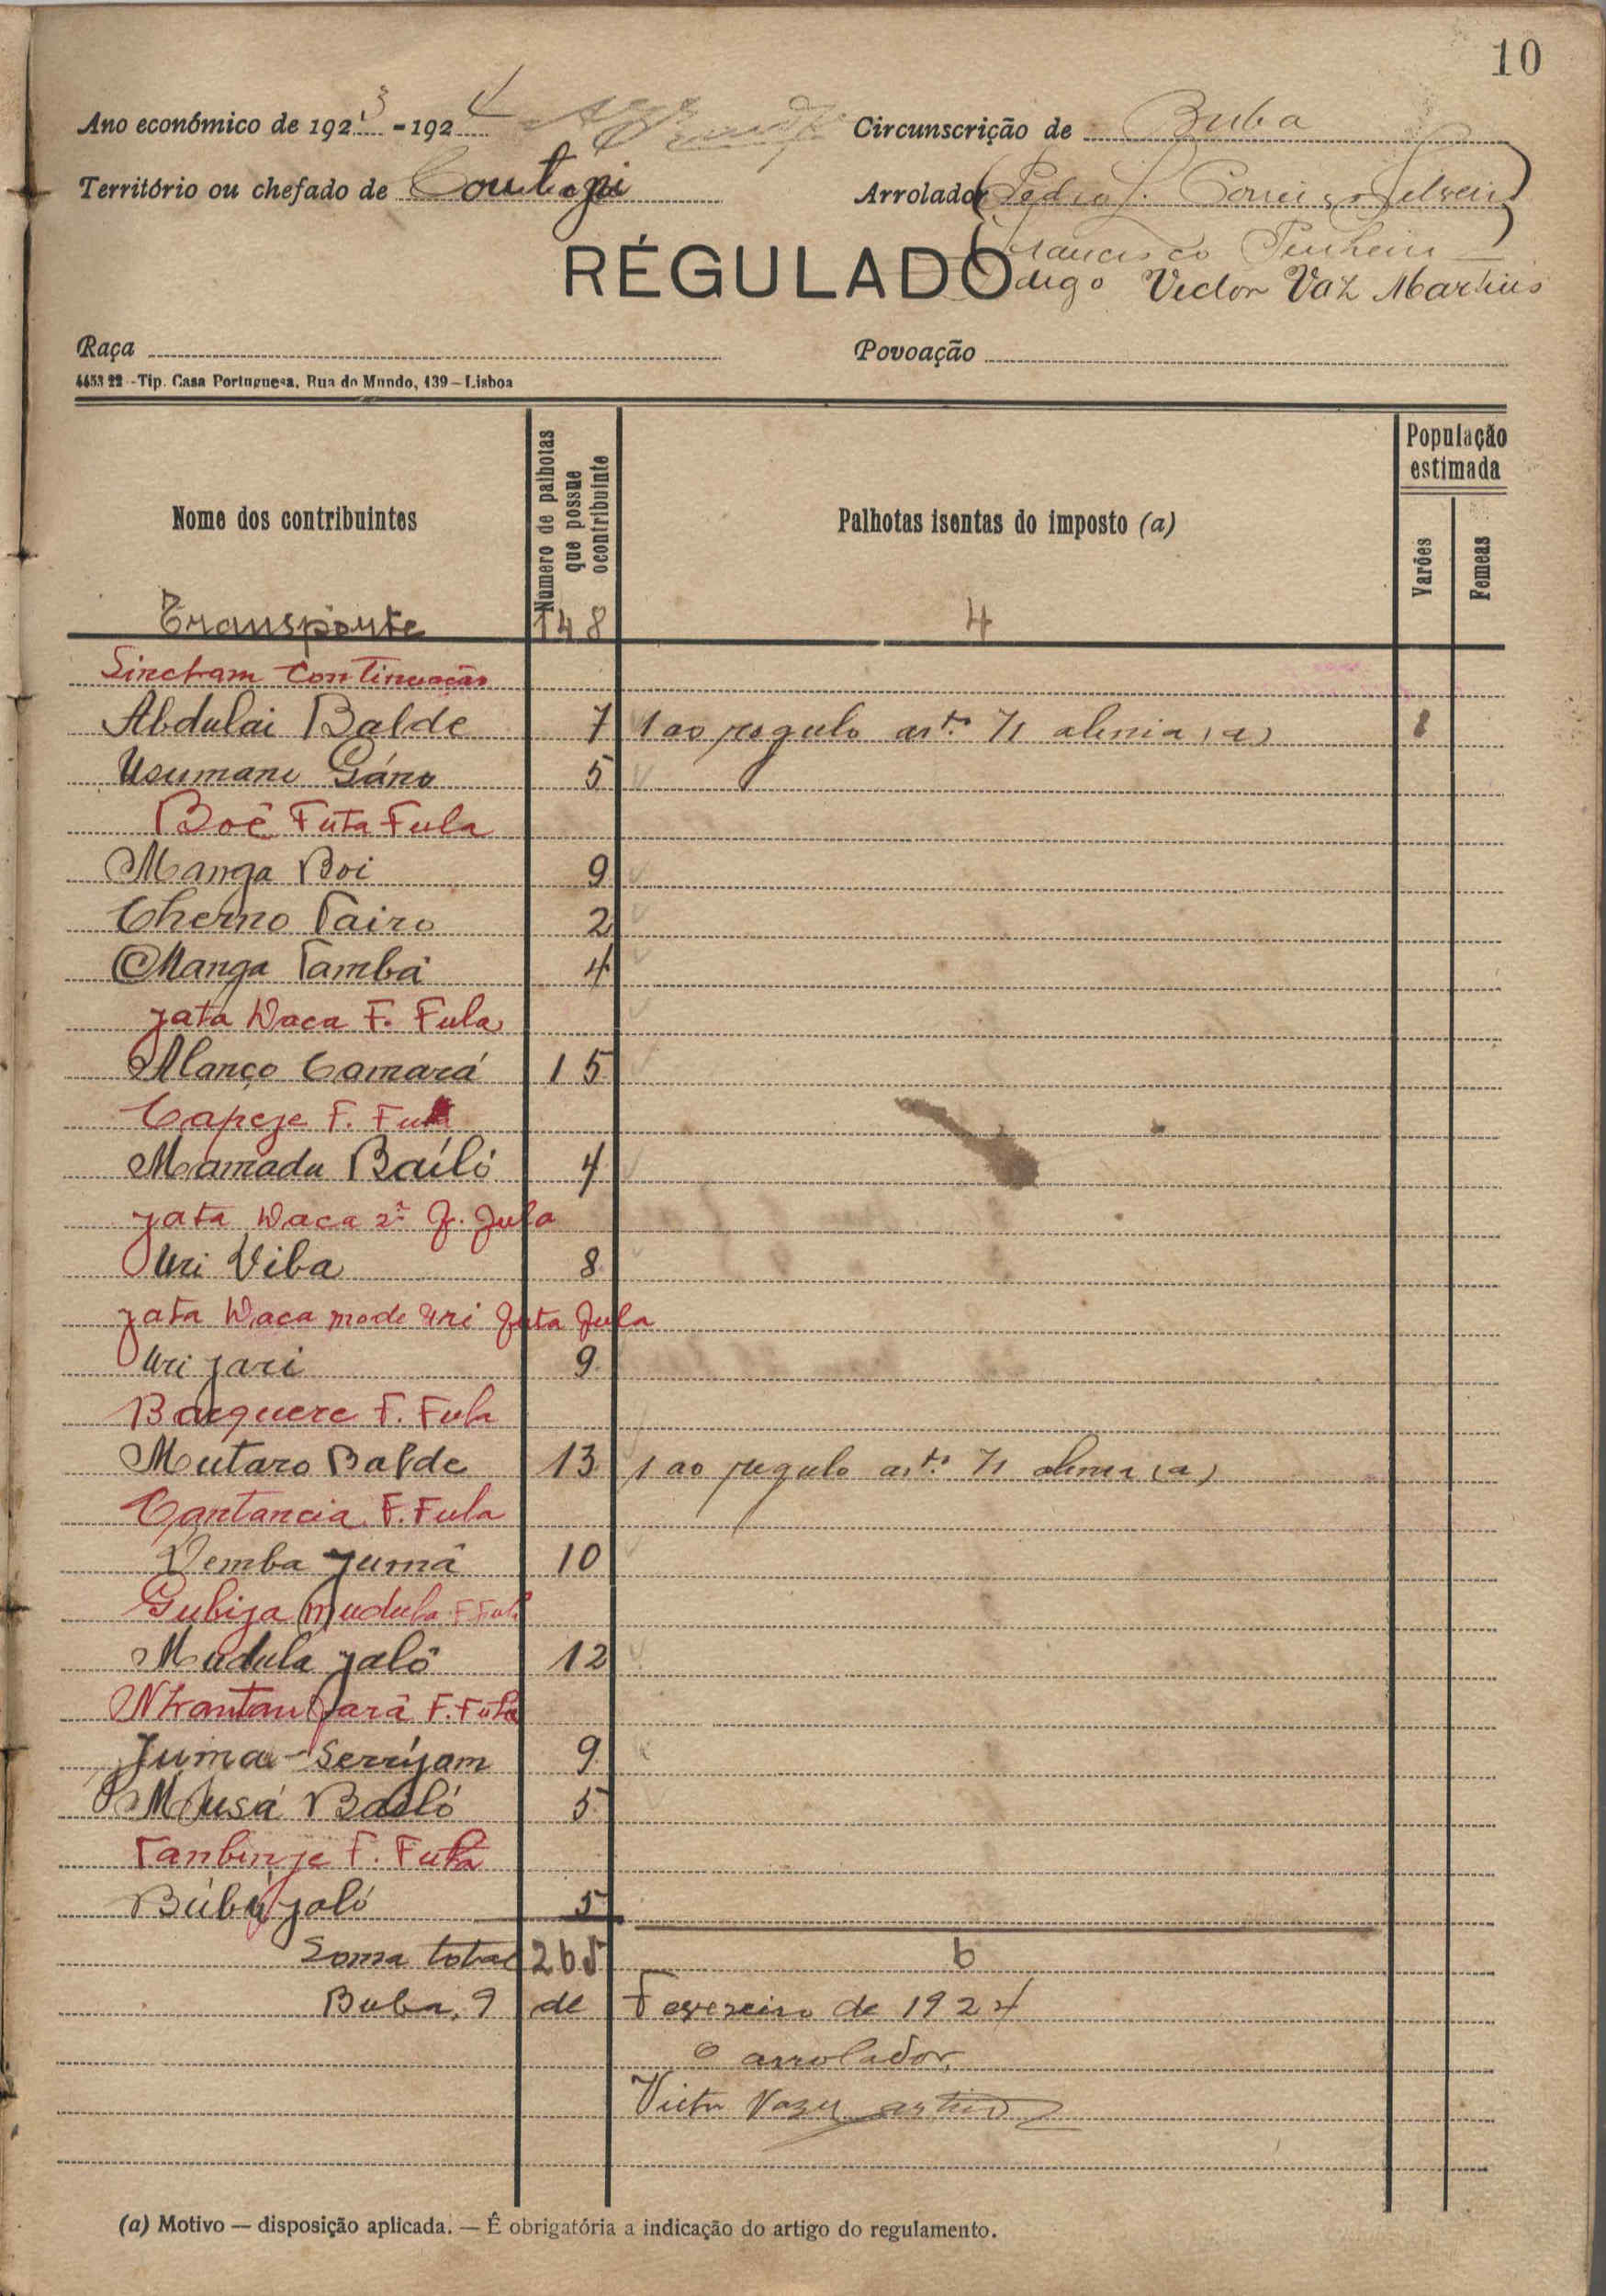 10
Ano económico de 1923-1924
Circunscrição de Buba
Território ou chefado de
Arrolador (Pedro
Francisco Pinheiro
digo Victor Vaz Martins
RÉGULADO
Raça
Povoação
4453 22 - Tip. Casa Portuguesa, Rua do Mundo, 139 – Lisboa
Nome dos contribuintes
Numero de palhotas que possue o contribuinte
Palhotas isentas do imposto (a)
População estimada
Varões
Femeas
Transporte 148 4
Sincham Continuação
Abdulai Balde 7 1 ao regulo art.º 71 (a)
Usumane Gáno 5
Boê Futa Fula
Manga Boi 9
Cherno Tairo 2
Manga Tambá 4
jata Waca F. Fula
Alanço Camará 15
Capeje F. Fula
Mamadu Bailó 4
jata Waca 2ª F. Fula
Uri Viba 8
jata Waca mode Uri Futa Fula
Uri jari 9
Bacquere F. Fula
Mutaro Balde 13 1 ao regulo art.º 71 (a)
Cantancia F. Fula
Demba jumá 10
Gubija Mudula F. Fula
Mudula jaló 12
F. Fula
Juma Serrijam 9
Musá Bailó 5
Tanbinje F. Fula
Búbú jaló 5
Soma total 265 6
Buba, 9 de Fevereiro de 1924
O arrolador
Victor Vaz Martins
(a) Motivo — disposição aplicada. — É obrigatória a indicação do artigo do regulamento.